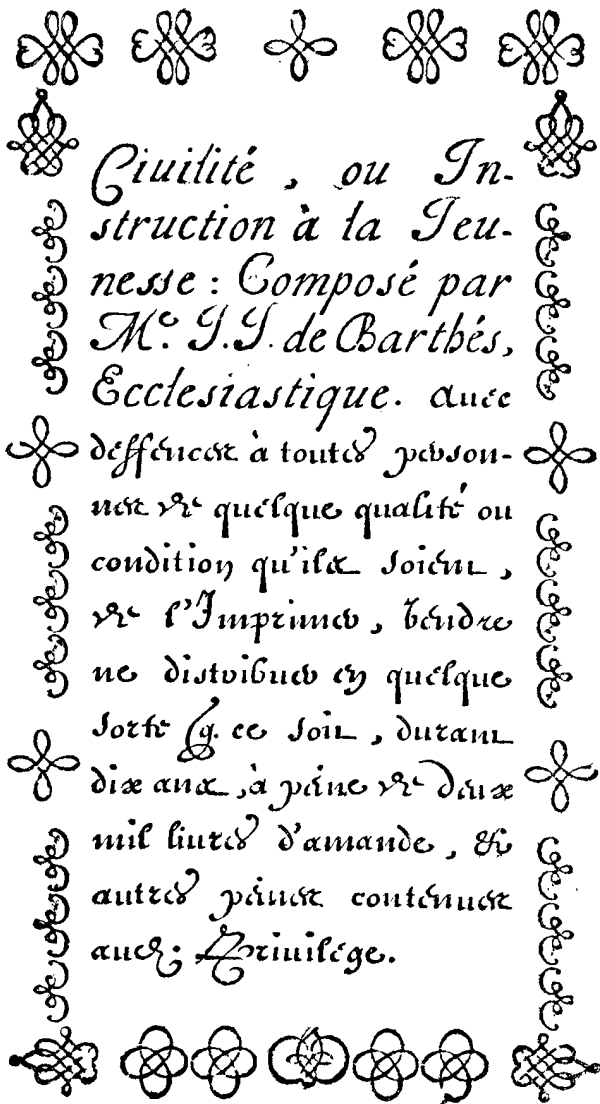 Ciuilité, ou In-
struction à la Ieu-
nesse : Composé par
Me. I.I. de Barthés,
Ecclesiastique. auec
deffences à toutes person-
nes de quelque qualité ou
condition qu'ils soient,
de l'Imprimer, vendre
ne distribuer en quelque
sorte q. ce soit, durant
dix ans, à péine de deux
mil liures d'amande, &
autres péines contenues
aud. Priuilége.